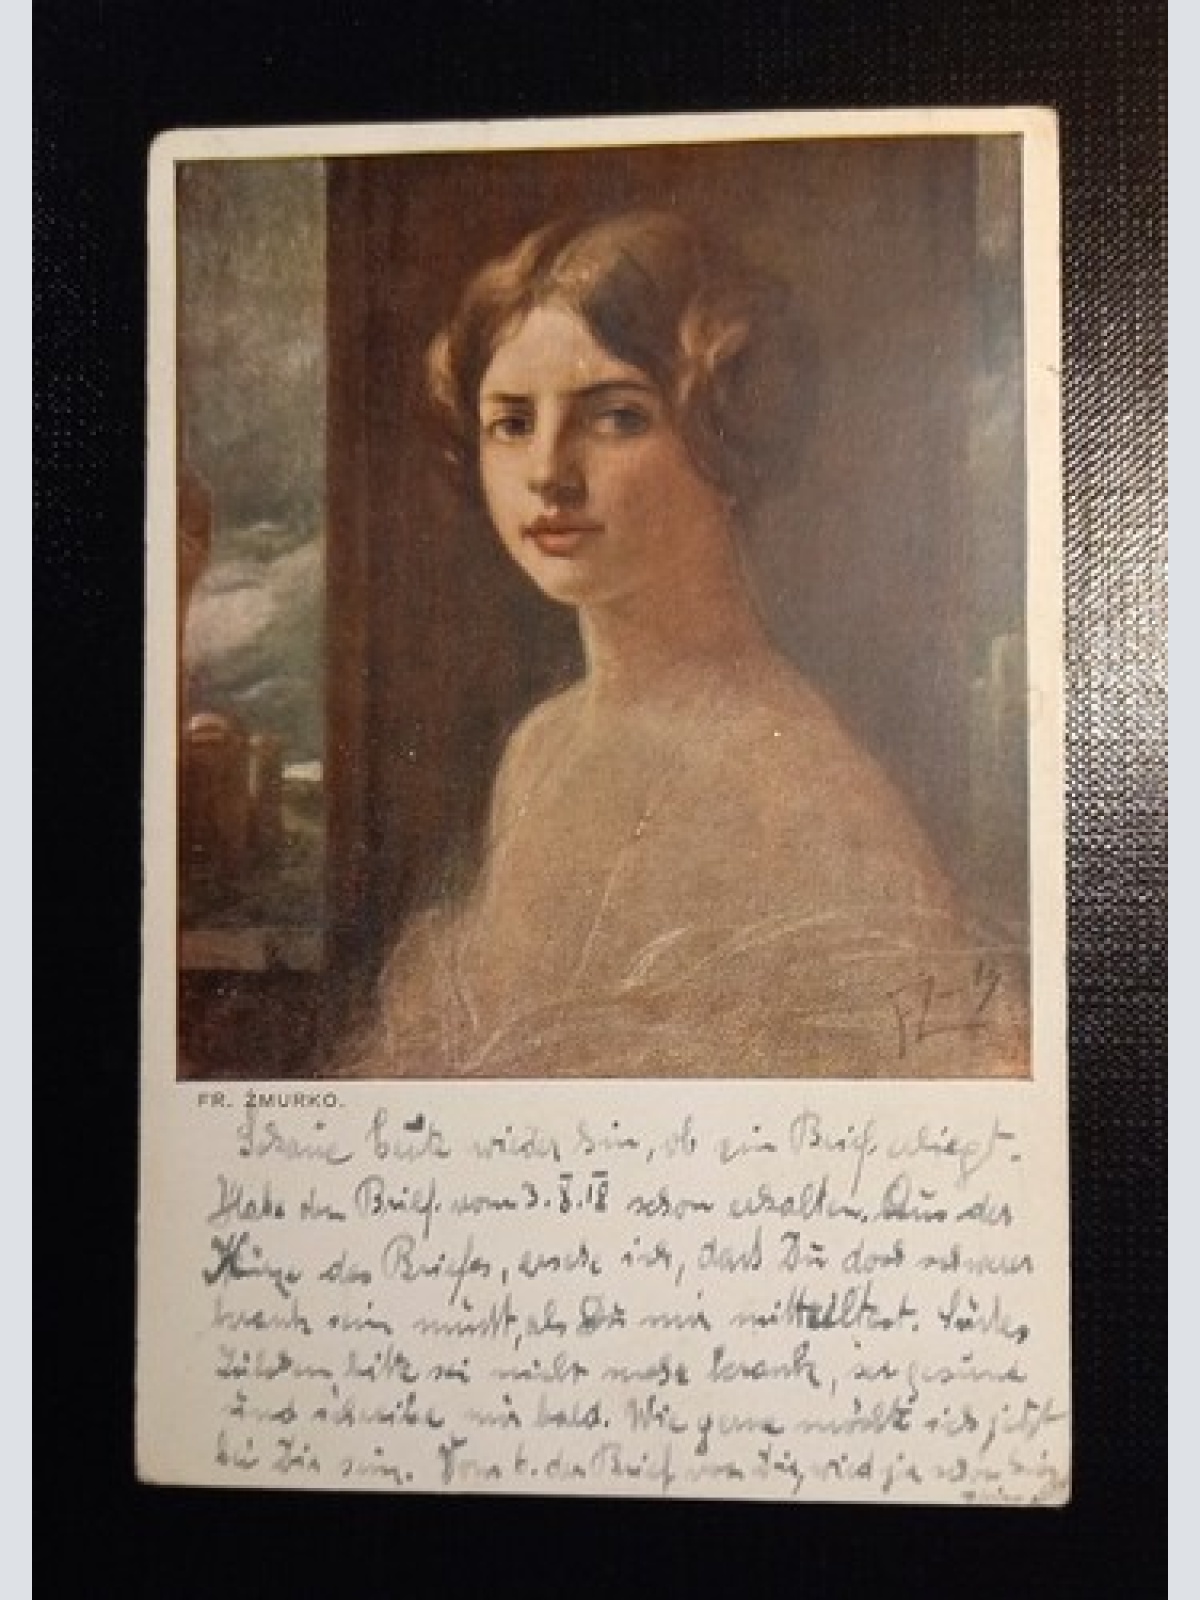 FR. ŻMURKO.
wieder hin, ob ein Brief erliegt.
Habe den Brief vom 3.X.18 schon erhalten. Aus der
Kürze des Briefes, ersehe ich, daß Du doch schwer
krank sein mußt, als Du mir mitteiltest.
bitte sei nicht mehr krank, sei gesund
und schreibe mir bald. Wie gerne möchte ich jetzt
bei Dir sein. Vom den Brief von Dir, wird ja schon